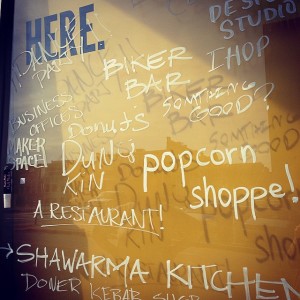 HERE.
DESIGN
STUDIO
IHOP
BIKER
BAR
SOMTHING
GOOD?
BUSINESS
OFFICES
DONUTS
MAKER
SPACE
DUNY
KIN
popcorn
shoppe!
A RESTAURANT!
→SHAWARMA KITCHEN
DONER KEBAB SHOP